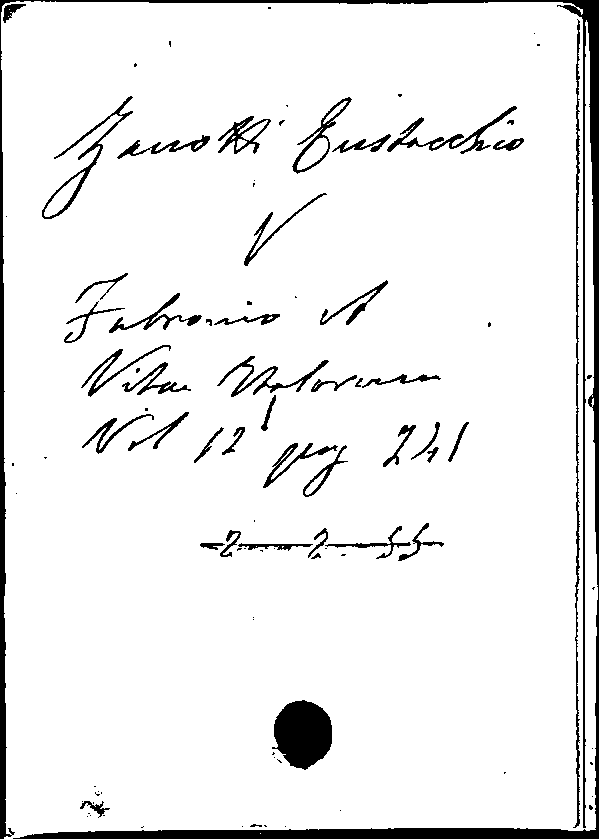 Zanotti Eustacchio
V
Fabronio A
Vitae Italorum
Vol 12 pag 241
2 2 55